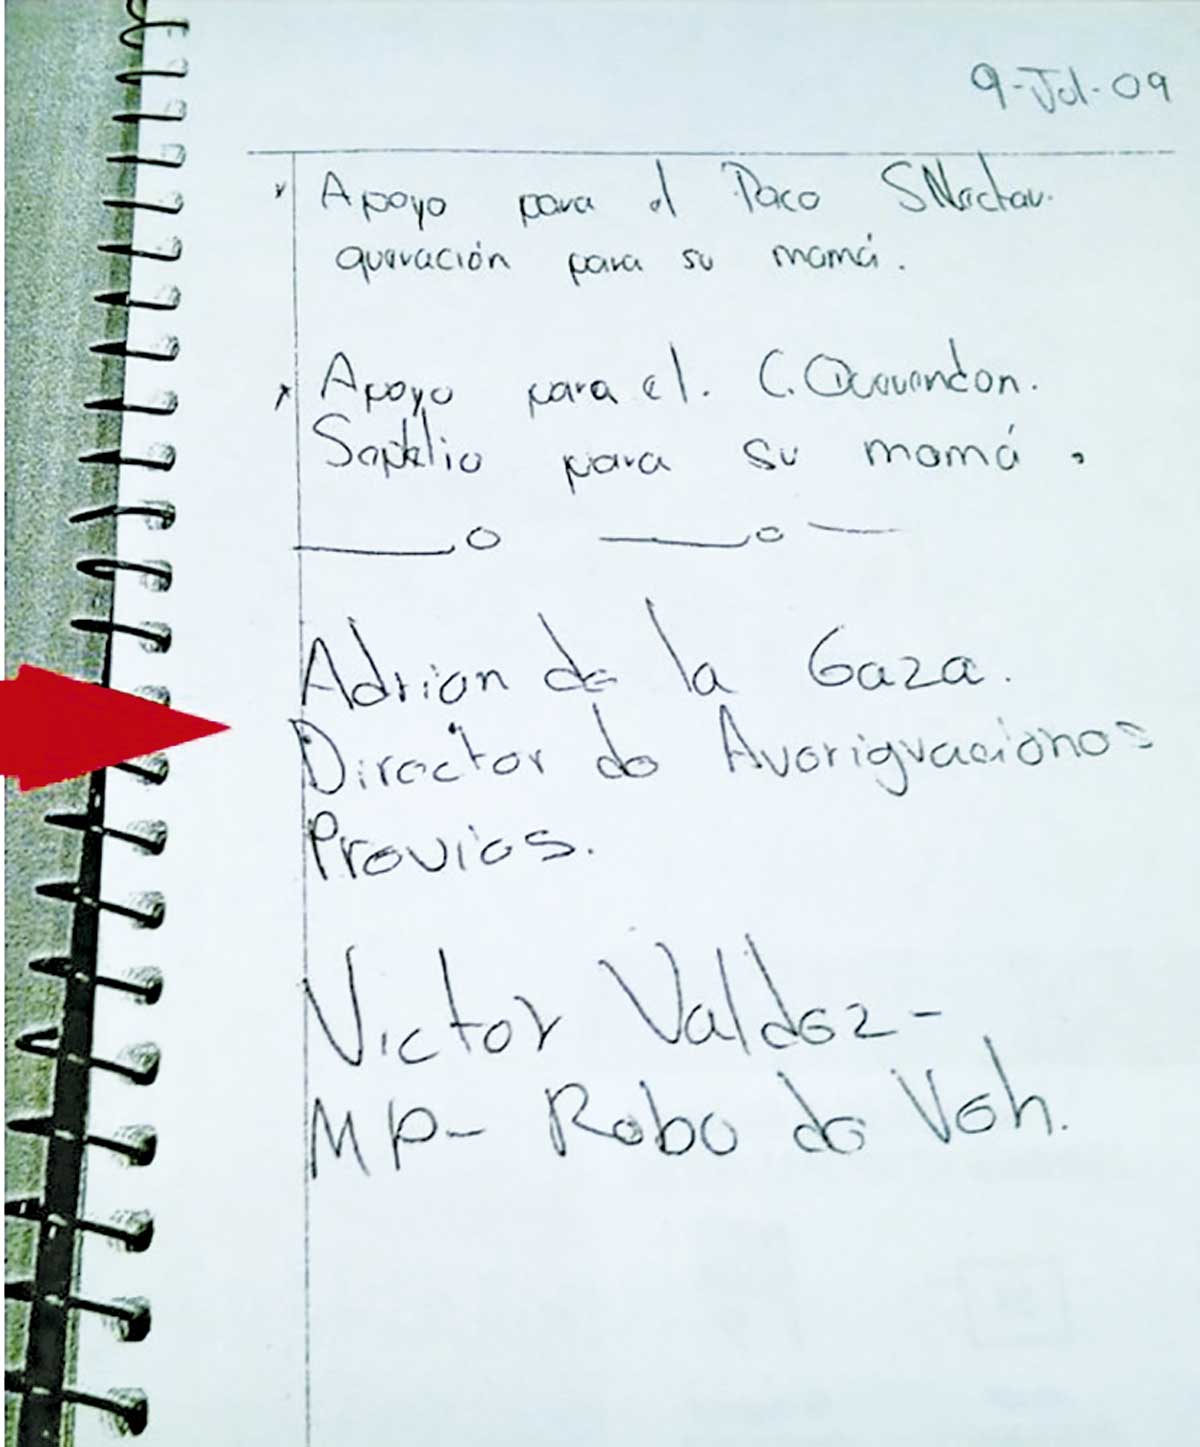 9-Jul-09
Apoyo para el Paco
para su mamá.
Apoyo para el. C.
para su mamá.
Adrian de la Gaza.
Director de Averiguaciones
Previas.
Victor Valdez-
MP- Robo de Veh.